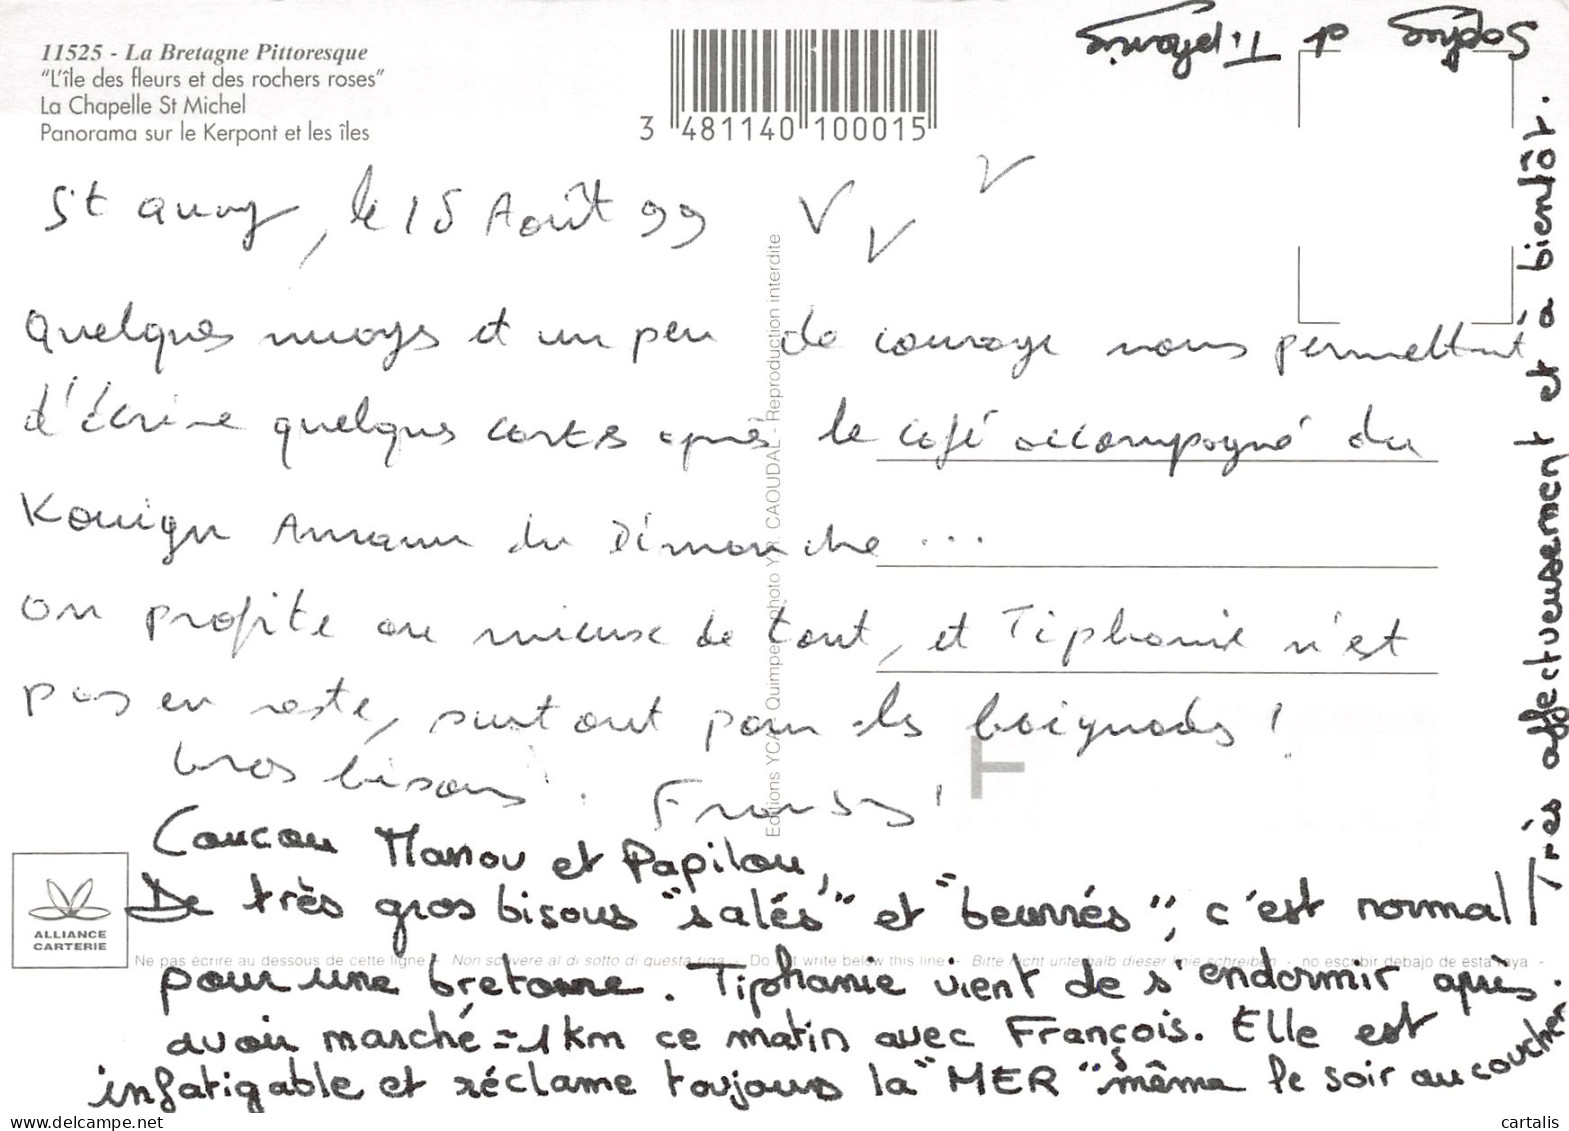 11525 - La Bretagne Pittoresque
"L'île des fleurs et des rochers roses"
La Chapelle St Michel
Panorama sur le Kerpont et les îles
3 481140 100015
St Quay, le 15 Août 99
Quelques nuages et un peu de courage nous permettent
d'écrire quelques cartes après le café accompagné du
Kouign Amann du Dimanche ...
On profite au mieux de tout, et Tiphanie n'est
pas en reste, surtout pour les baignades !
Gros bisous. François
Coucou Manou et Papilou,
De très gros bisous "salés" et "beurrés", c'est normal
pour une bretonne. Tiphanie vient de s'endormir après
avoir marché = 1 km ce matin avec François. Elle est
infatigable et réclame toujours la "MER" même le soir au coucher.
Très affectueusement et à bientôt.
Sophie et Tiphanie
Editions YCA Quimper photo Y.R. CAOUDAL - Reproduction interdite
T
ALLIANCE
CARTERIE
Ne pas écrire au dessous de cette ligne - Non scrivere al di sotto di questa riga - Do not write below this line - Bitte nicht unterhalb dieser linie schreiben - no escribir debajo de esta raya -
delcampe.net
cartalis